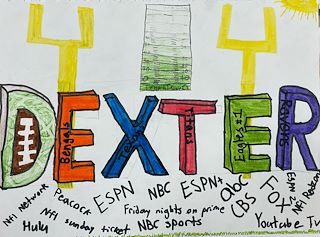 DEXTER
Bengals
Texans
Titans
Eagles #1
Ravens
Nfl Network
Peacock
ESPN
NBC
ESPN+
abc
CBS
FOX
Hulu
Nfl sunday ticket
Friday nights on prime
NBC sports
Youtube Tv